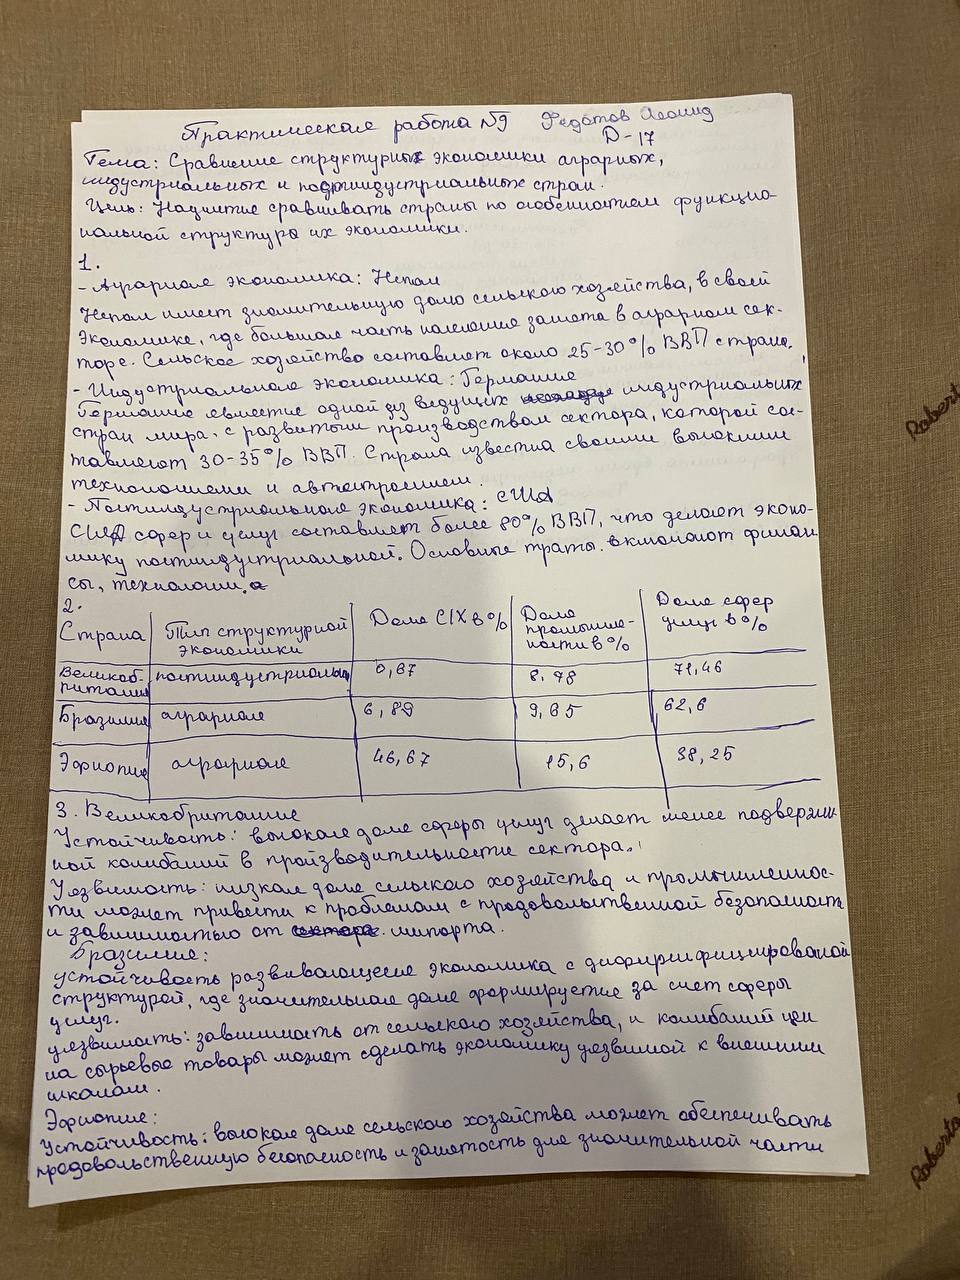 Практическая работа №9 Федотов Леонид
Д-17
Тема: Сравнение структурных экономики аграрных,
индустриальных и постиндустриальных стран.
Цель: Научится сравнивать страны по особенностям функцио-
нальной структуры их экономики.
1.
- Аграрная экономика: Непал
Непал имеет значительную долю сельского хозяйства, в своей
экономике, где большая часть населения занята в аграрном сек-
торе. Сельское хозяйство составляет около 25-30% ВВП страны.
- Индустриальная экономика: Германия
Германия является одной из ведущих индустриальных
стран мира, с развитым производством сектора, которой сос-
тавляют 30-35% ВВП. Страна известна своими высокими
технологиями и автостроением.
- Постиндустриальная экономика: США
США сфер и услуг составляет более 80% ВВП, что делает эконо-
мику постиндустриальной. Основные траты включают финан-
сы, технологии.
2.
Страна Тип структурной экономики Доля С/Х в % Доля промышле-ности в % Доля сфер услуг в %
Великоб-ритания постиндустриальн 0,67 8,98 71,46
Бразилия аграрная 6,89 9,65 62,6
Эфиопия аграрная 46,67 15,6 38,25
3. Великобритания
Устойчивость: высокая доля сферы услуг делает менее подвержен-
ной колибаний в производительности сектора.
Уязвимость: низкая доля сельского хозяйства и промышленнос-
ти может привести к проблемам с продовольственной безопасност
и зависимостью от импорта.
Бразилия:
устойчивость развивающаяся экономика с дифирсифицированой
структурой, где значительная доля формируется за счет сферы
услуг.
уязвимость: зависимость от сельского хозяйства, и колибаний цен
на сырьевые товары может сделать экономику уязвимой к внешним
шкалам.
Эфиопия:
Устойчивость: высокая доля сельского хозяйства может обеспечивать
продовольственную безопасность и занятость для значительной части